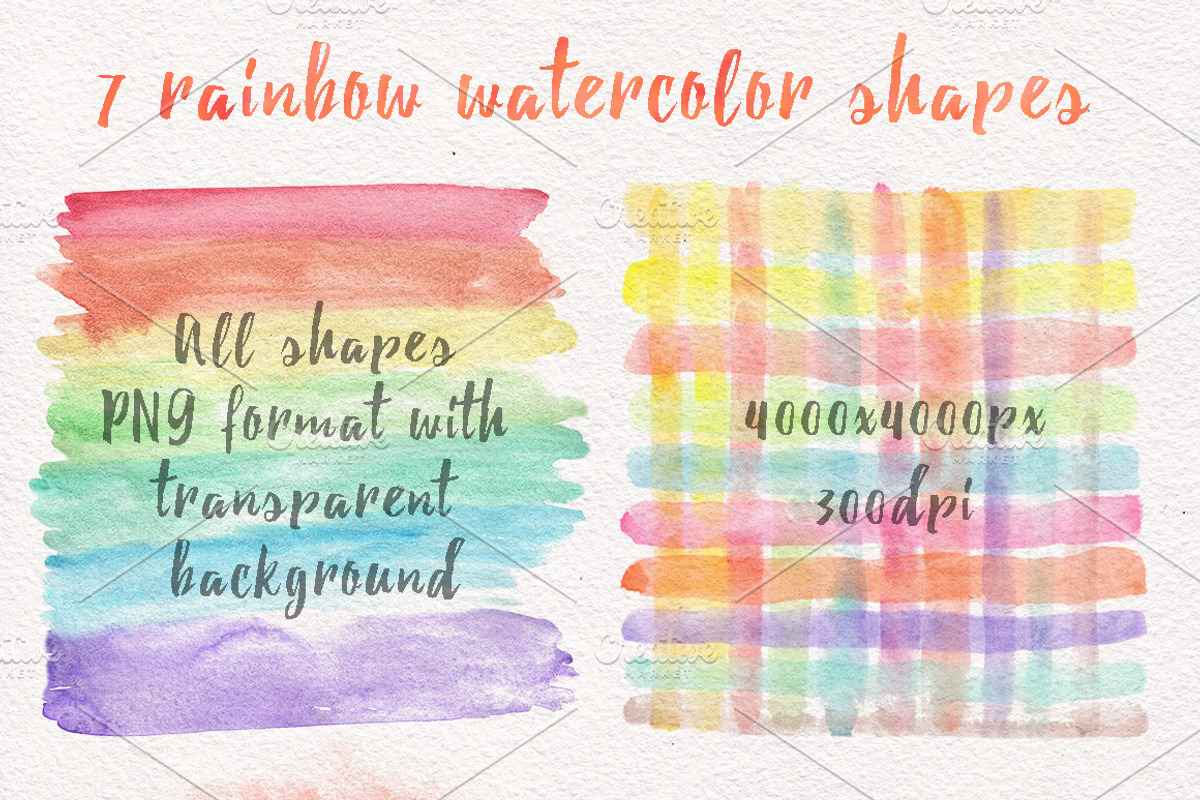 7 rainbow watercolor shapes
All shapes
PNG format with
transparent
background
4000x4000px
300dpi
Creative
MARKET